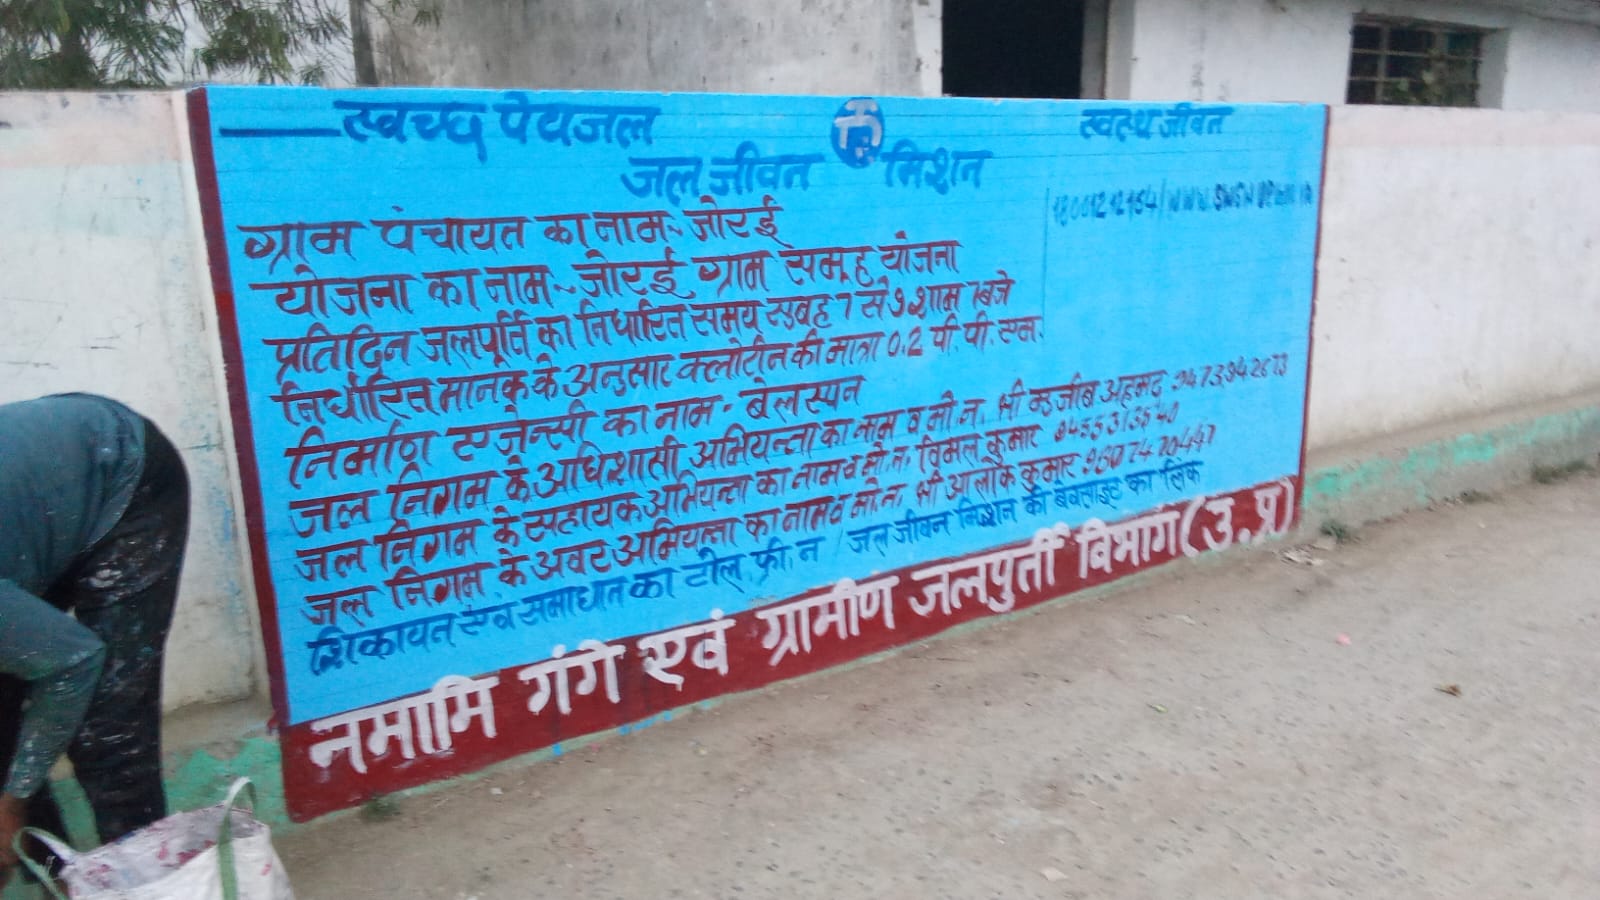 स्वच्छ पेयजल स्वस्थ जीवन
जल जीवन मिशन
ग्राम पंचायत का नाम:- जोरई
योजना का नाम:- जोरई ग्राम समूह योजना
प्रतिदिन जलपूर्ति का निर्धारित समय सुबह 7 से 9 शाम बजे
निर्धारित मानक के अनुसार क्लोरीन की मात्रा 0.2 पी. पी. एम.
निर्माण एजेन्सी का नाम - बेलस्पन
जल निगम के अधिशासी अभियन्ता का नाम व मो.न. श्री मुजीब अहमद
जल निगम के सहायक अभियन्ता का नाम व मो.न. विमल कुमार
जल निगम के अवर अभियन्ता का नाम व मो.न. श्री आलोक कुमार
शिकायत एवं समाधान का टोल. फ्री. न / जल जीवन मिशन की बेवसाइट का लिंक
नमामि गंगे एवं ग्रामीण जलपुर्ती विभाग (उ.प्र)